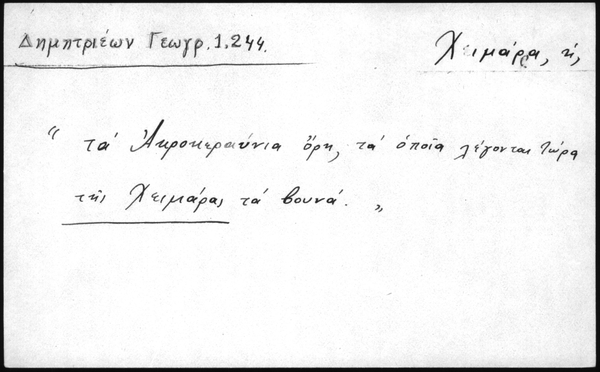 Δημητριέων Γεωγρ. 1, 244.
Χειμάρρα, ἡ,
“ τὰ Ἀκροκεραύνια ὄρη, τὰ ὁποῖα λέγονται τώρα
τῆς Χειμάρας τὰ βουνά. „